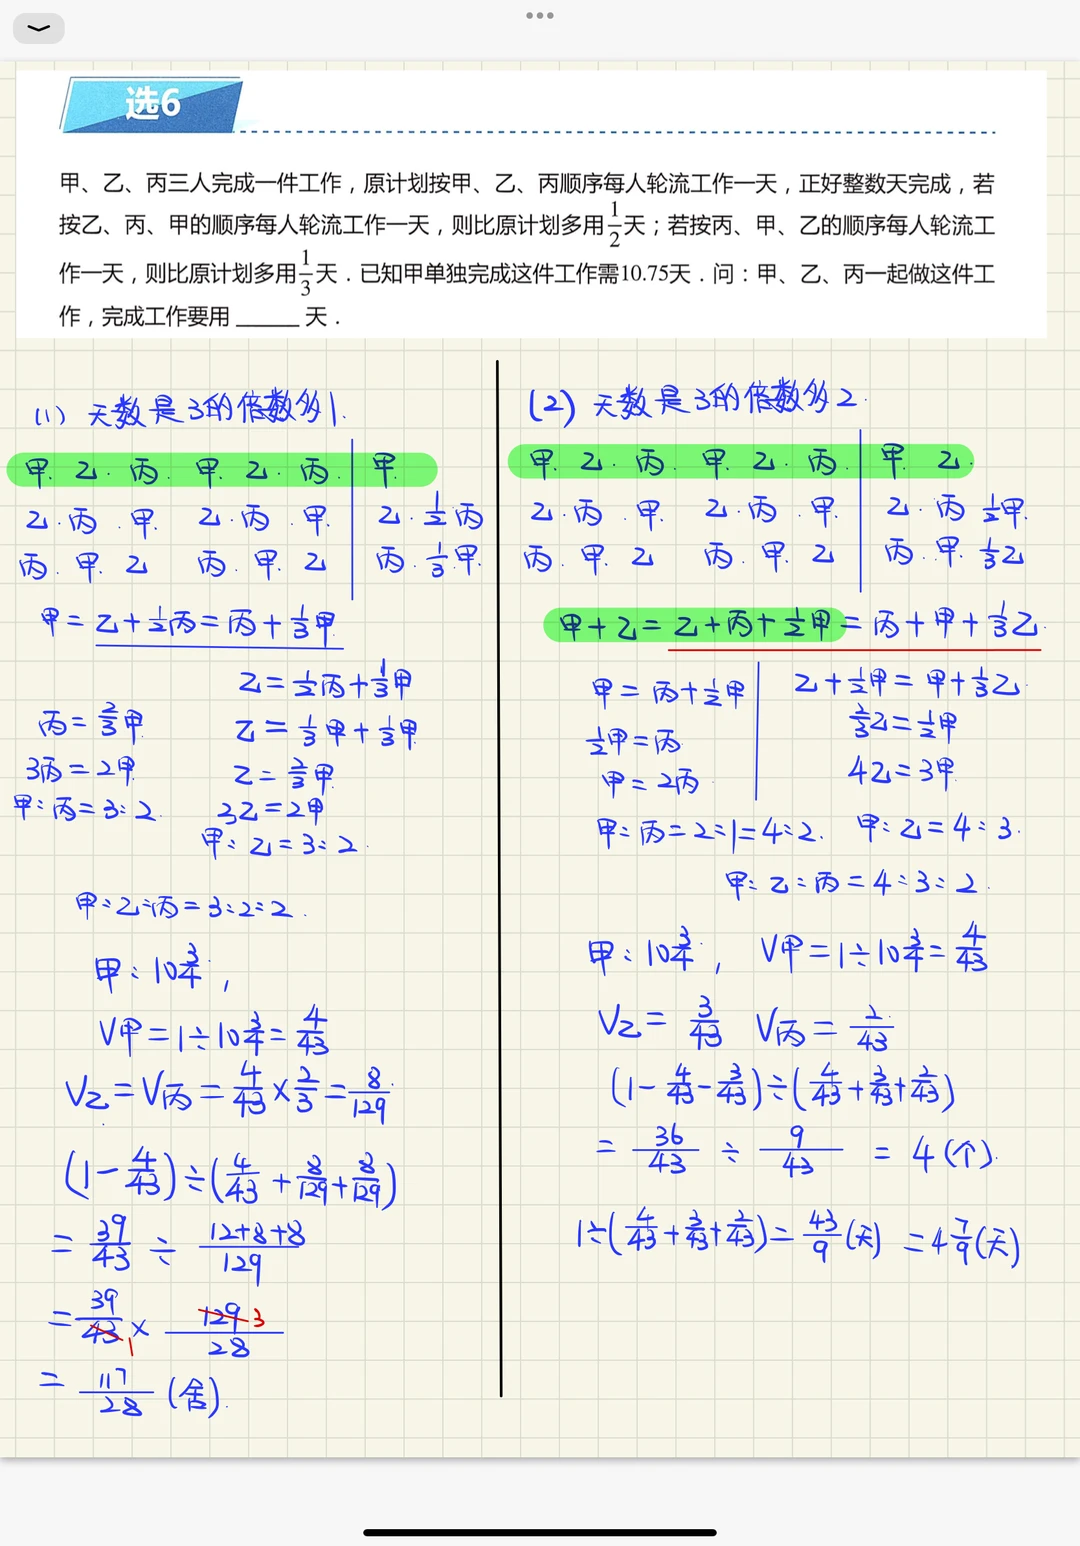 选6
甲、乙、丙三人完成一件工作，原计划按甲、乙、丙顺序每人轮流工作一天，正好整数天完成，若
按乙、丙、甲的顺序每人轮流工作一天，则比原计划多用1/2天；若按丙、甲、乙的顺序每人轮流工
作一天，则比原计划多用1/3天．已知甲单独完成这件工作需10.75天．问：甲、乙、丙一起做这件工
作，完成工作要用 ______ 天．
(1) 天数是3的倍数多1.
甲. 乙. 丙. 甲. 乙. 丙. 甲.
乙.丙.甲. 乙.丙.甲. 乙.1/2丙
丙.甲.乙 丙.甲.乙 丙.1/3甲.
甲=乙+1/2丙=丙+1/3甲
乙=1/2丙+1/3甲
丙=2/3甲 乙=1/3甲+1/3甲
3丙=2甲 乙=2/3甲
甲:丙=3:2. 3乙=2甲
甲:乙=3:2.
甲:乙:丙=3:2:2.
甲:10 3/4,
V甲=1÷10 3/4=4/43
V乙=V丙=4/43×2/3=8/129
(1-4/43)÷(4/43+8/129+8/129)
=39/43÷(12+8+8)/129
=39/43×129/28 1 3
=117/28 (舍).
(2) 天数是3的倍数多2.
甲. 乙. 丙. 甲. 乙. 丙. 甲. 乙.
乙.丙.甲. 乙.丙.甲. 乙.丙 1/2甲.
丙.甲.乙 丙.甲.乙 丙.甲.1/3乙
甲+乙=乙+丙+1/2甲=丙+甲+1/3乙.
甲=丙+1/2甲 乙+1/2甲=甲+1/3乙.
1/2甲=丙. 2/3乙=1/2甲
甲=2丙 4乙=3甲.
甲:丙=2:1=4:2. 甲:乙=4:3.
甲:乙:丙=4:3:2.
甲:10 3/4, V甲=1÷10 3/4=4/43
V乙=3/43 V丙=2/43
(1-4/43-3/43)÷(4/43+3/43+2/43)
=36/43÷9/43=4(个).
1÷(4/43+3/43+2/43)=43/9(天)=4 7/9(天)